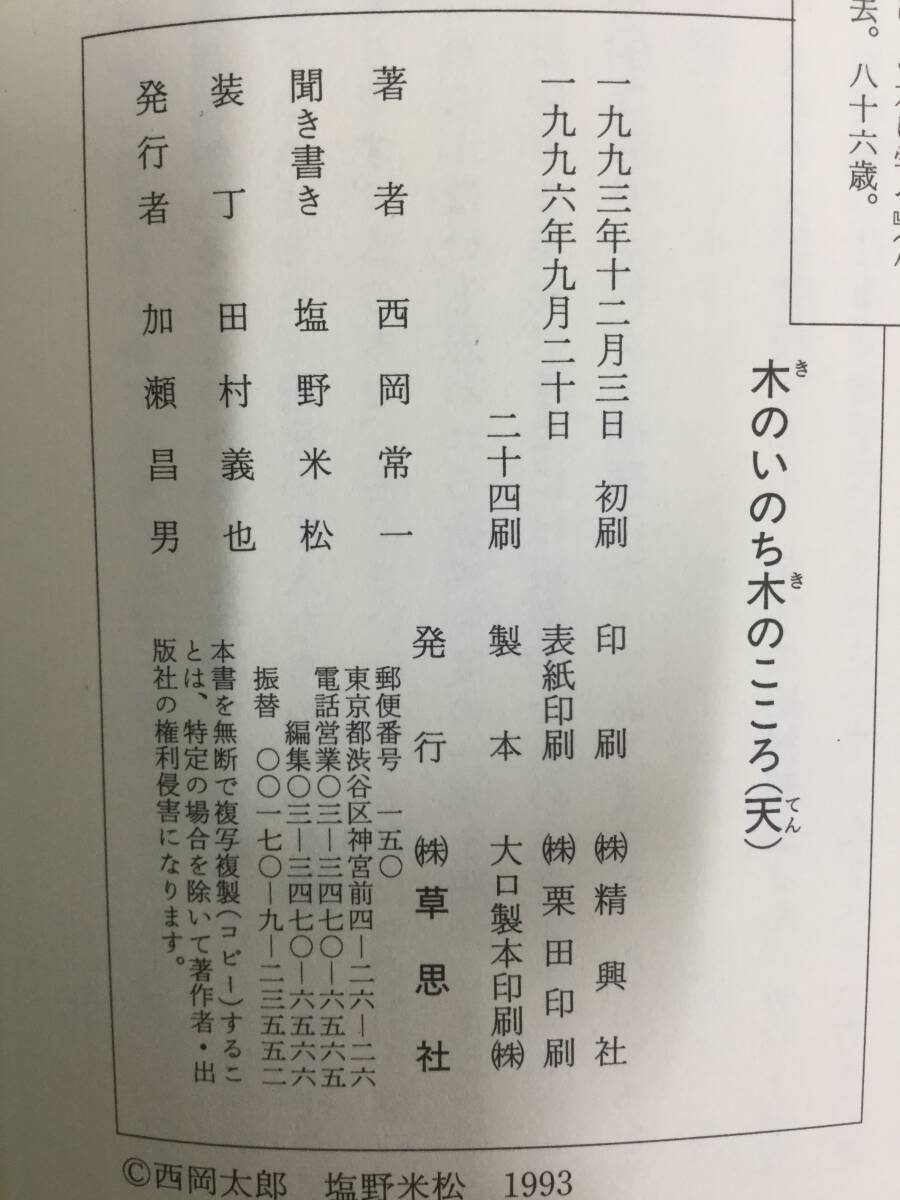 去。八十六歳。
木のいのち木のこころ(天)
き
き
てん
一九九三年十二月三日 初刷
一九九六年九月二十日
二十四刷
著者 西岡常一
聞き書き 塩野米松
装丁 田村義也
発行者 加瀬昌男
印刷 ㈱精興社
表紙印刷 ㈱栗田印刷
製本 大口製本印刷㈱
発行 ㈱草思社
郵便番号 一五〇
東京都渋谷区神宮前四―二六―二六
電話営業〇三―三四七〇―六五六五
編集〇三―三四七〇―六五六六
振替 〇〇一七〇―九―二三五五二
本書を無断で複写複製(コピー)するこ
とは、特定の場合を除いて著作者・出
版社の権利侵害になります。
©西岡太郎 塩野米松 1993